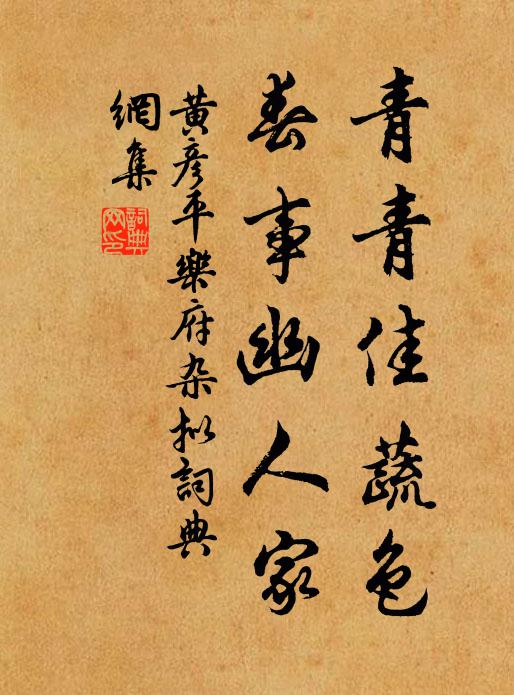 青青佳蔬色
春事幽人家
黄彦平樂府杂拟詞典
網集
詞典
网印